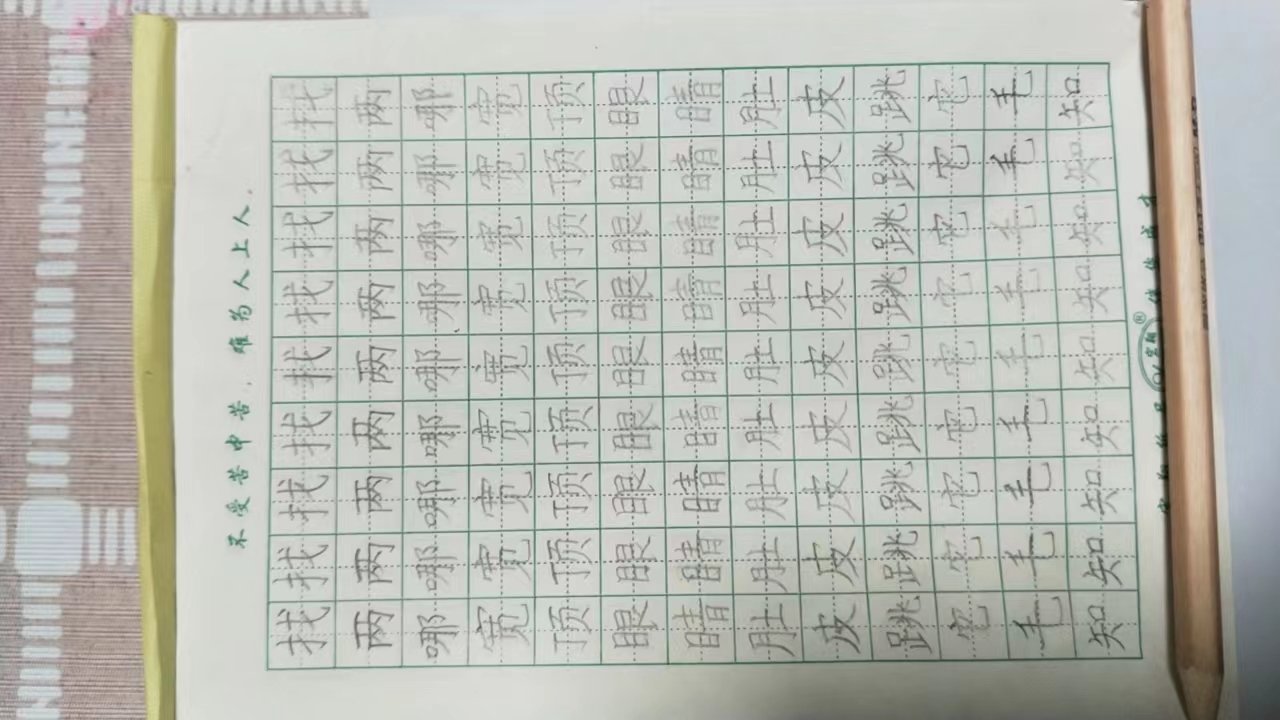 不受苦中苦，难为人上人。
找找找找找找找找找
两两两两两两两两两
哪哪哪哪哪哪哪哪哪
宽宽宽宽宽宽宽宽宽
顶顶顶顶顶顶顶顶顶
眼眼眼眼眼眼眼眼眼
睛睛睛睛睛睛睛睛睛
肚肚肚肚肚肚肚肚肚
皮皮皮皮皮皮皮皮皮
跳跳跳跳跳跳跳跳跳
它它它它它它它它它
毛毛毛毛毛毛毛毛毛
知知知知知知知知知